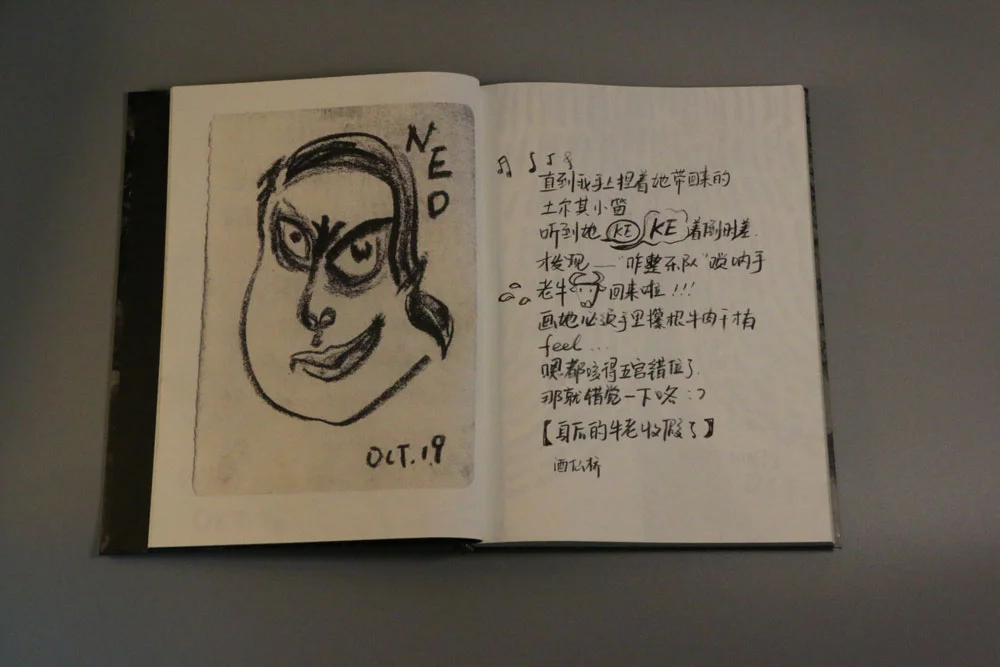 N
E
D
OCT.19
直到我手上捏着她带回来的
土尔其小笛
听到她 KE KE 着倒时差.
才发现——“咋整乐队”唢呐手
老牛 回来啦!!!
画她必须手里攥根牛肉干才有
feel...
嗯都咳得五官错位了.
那就错觉一下咯:)
【后的牛老收假了】
酒仙桥